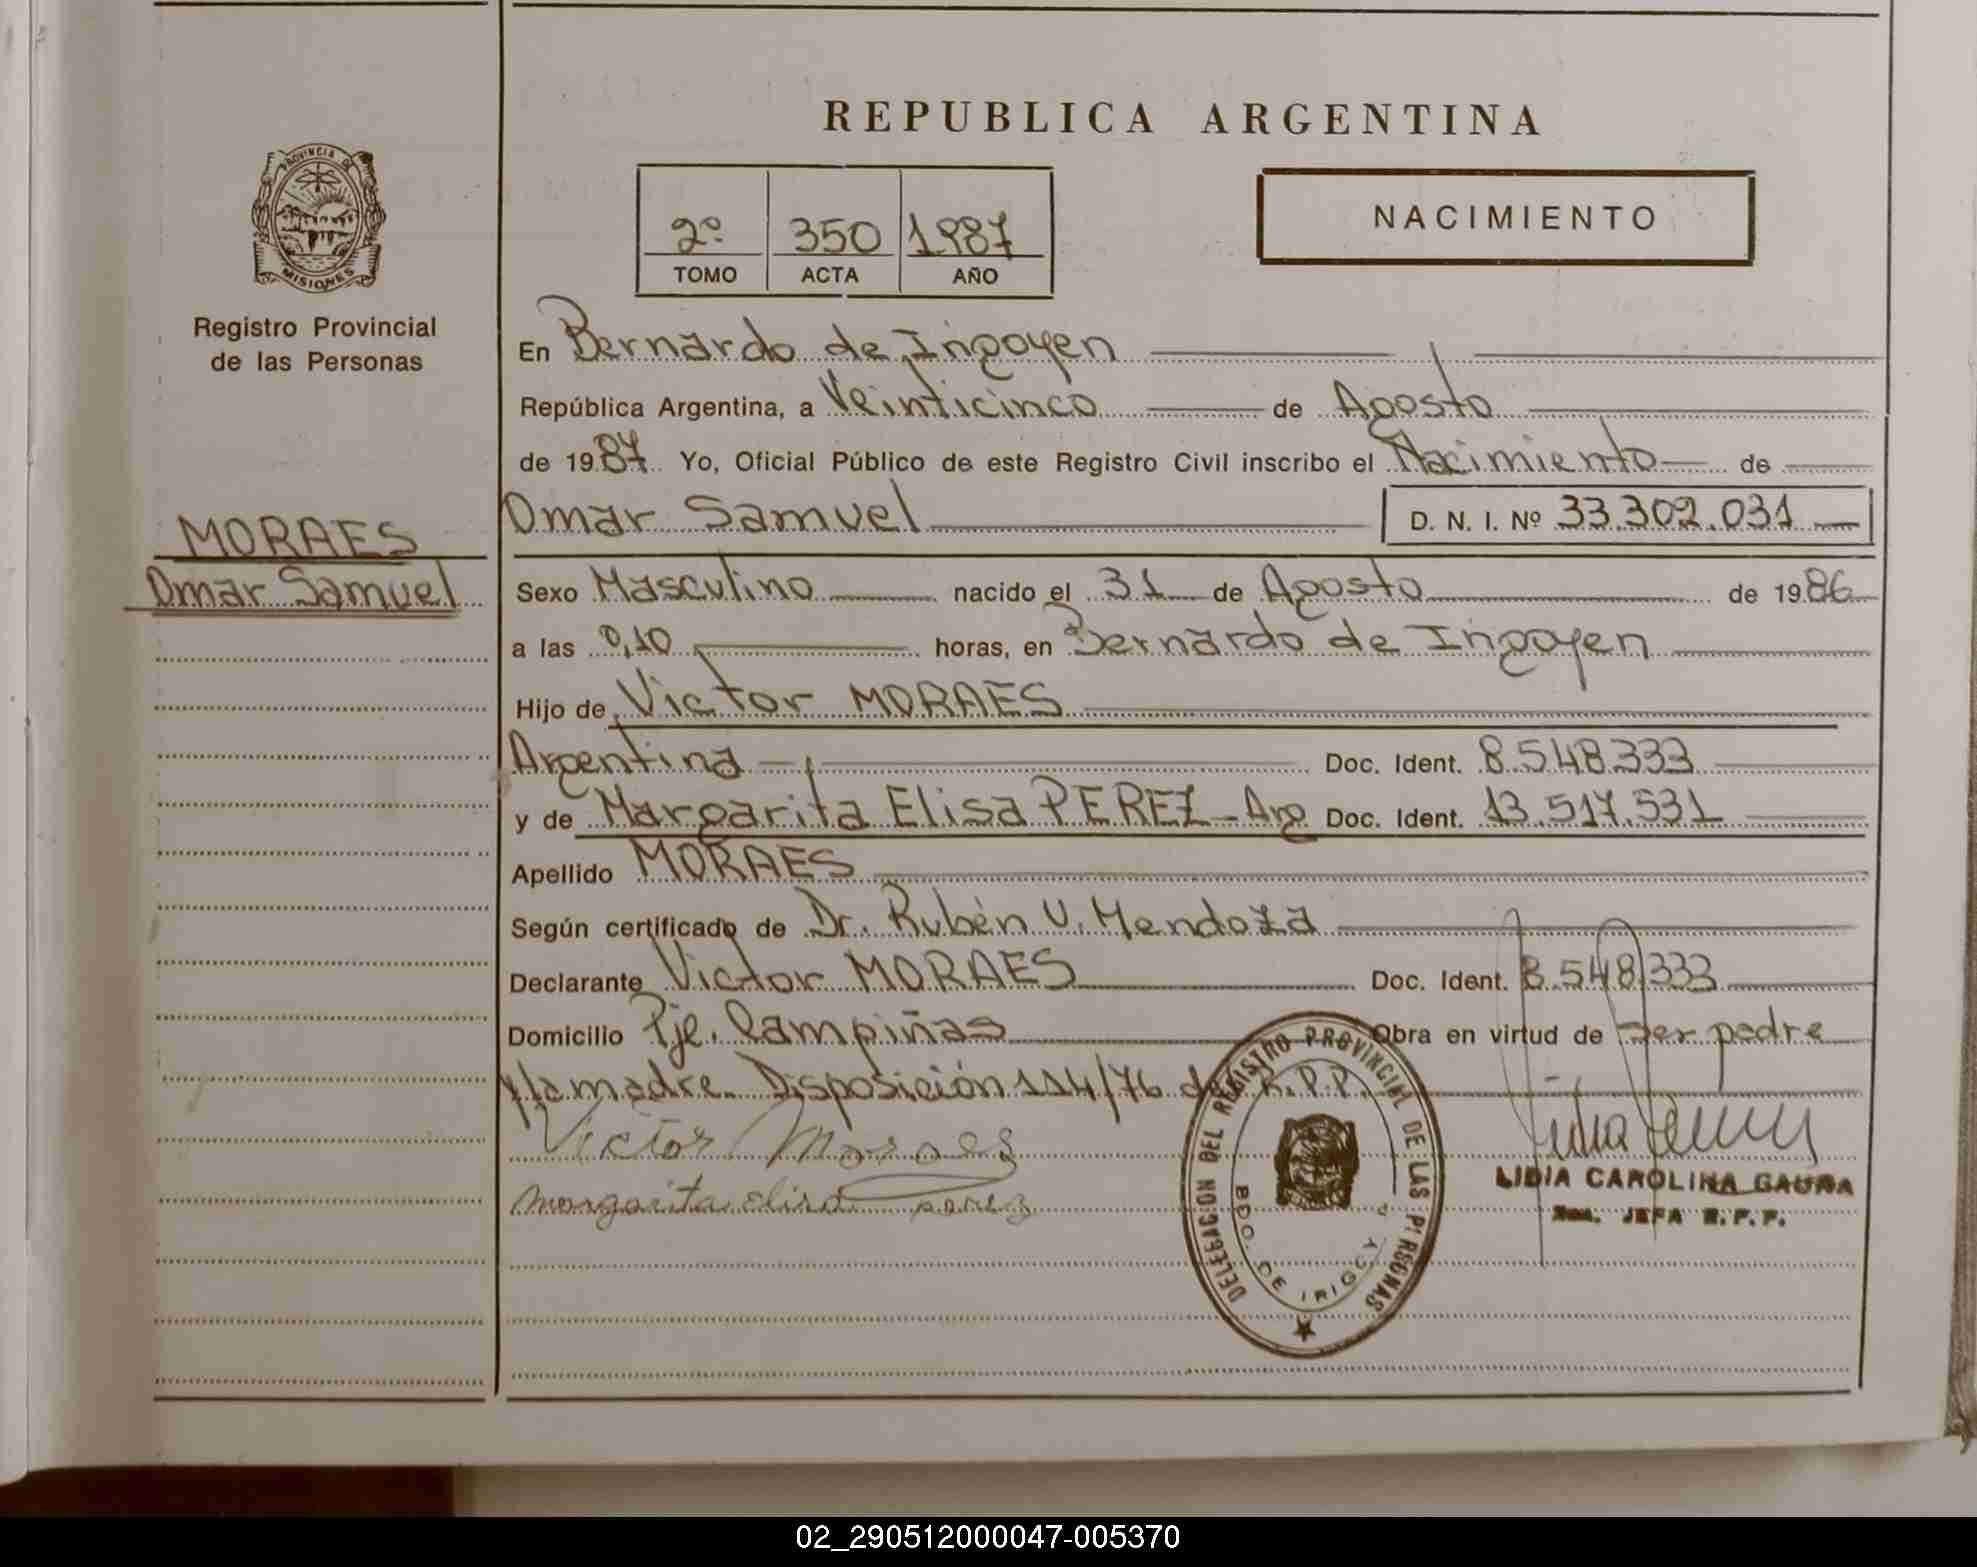 REPUBLICA ARGENTINA
PROVINCIA DE
MISIONES
Registro Provincial
de las Personas
2º 350 1987
TOMO ACTA AÑO
NACIMIENTO
En Bernardo de Irigoyen
República Argentina, a Veinticinco de Agosto
de 1987. Yo, Oficial Público de este Registro Civil inscribo el Nacimiento de
Omar Samuel D. N. I. Nº 33.302.031
MORAES
Omar Samuel
Sexo Masculino nacido el 31 de Agosto de 1986
a las 0,10 horas, en Bernardo de Irigoyen
Hijo de Victor MORAES
Argentina Doc. Ident. 8.548.333
y de Margarita Elisa PEREZ - Arg Doc. Ident. 13.517.531
Apellido MORAES
Según certificado de Dr. Rubén V. Mendoza
Declarante Victor MORAES Doc. Ident. 8.548.333
Domicilio Pje. Campiñas Obra en virtud de ser padre
y la madre. Disposición 114/76 del R.P.P.
Victor Moraes
margarita elisa perez
DELEGACION DEL REGISTRO PROVINCIAL DE LAS PERSONAS
BDO. DE IRIGOY
LIDIA CAROLINA GAUNA
JEFA R.P.P.
02_290512000047-005370